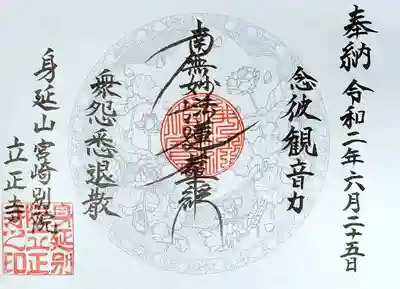 奉納 令和二年六月二十五日
念彼観音力
南無妙法蓮華経
衆怨悉退散
身延山宮崎別院
立正寺
身延別
院立正
寺之印